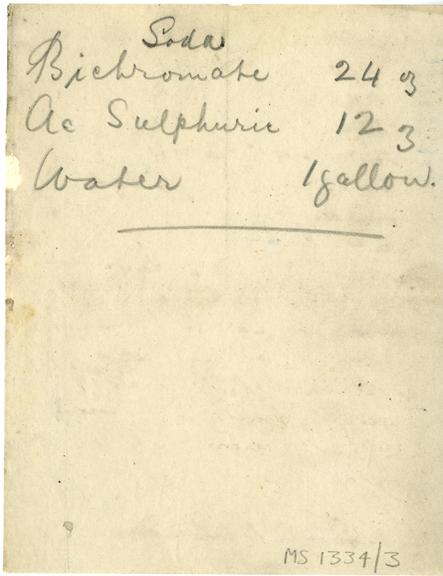 Soda
Bichromate 24 oz
Ac Sulphuric 12 ʒ
Water 1 gallon.
MS 1334/3